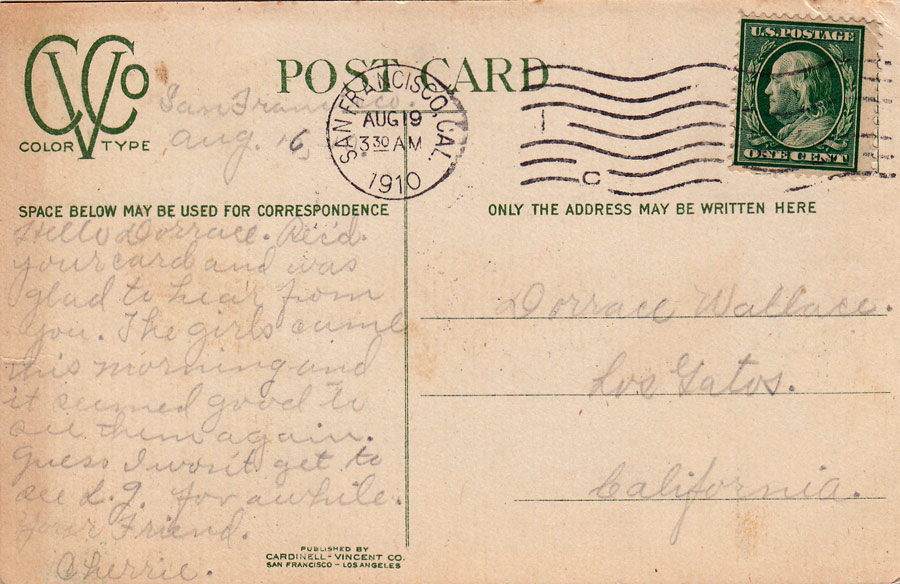 CVCo
COLOR TYPE
POST CARD
SAN FRANCISCO, CAL.
AUG 19
3 30 AM
1910
C
U.S. POSTAGE
ONE CENT
San Francisco.
Aug. 16,
SPACE BELOW MAY BE USED FOR CORRESPONDENCE
ONLY THE ADDRESS MAY BE WRITTEN HERE
Hello Dorrace. Rec'd.
your card and was
glad to hear from
you. The girls came
this morning and
it seemed good to
see them again.
Guess I won't get to
see L.G. for awhile.
Your Friend.
Cherrie.
Dorrace Wallace.
Los Gatos.
California.
PUBLISHED BY
CARDINELL-VINCENT CO.
SAN FRANCISCO - LOS ANGELES